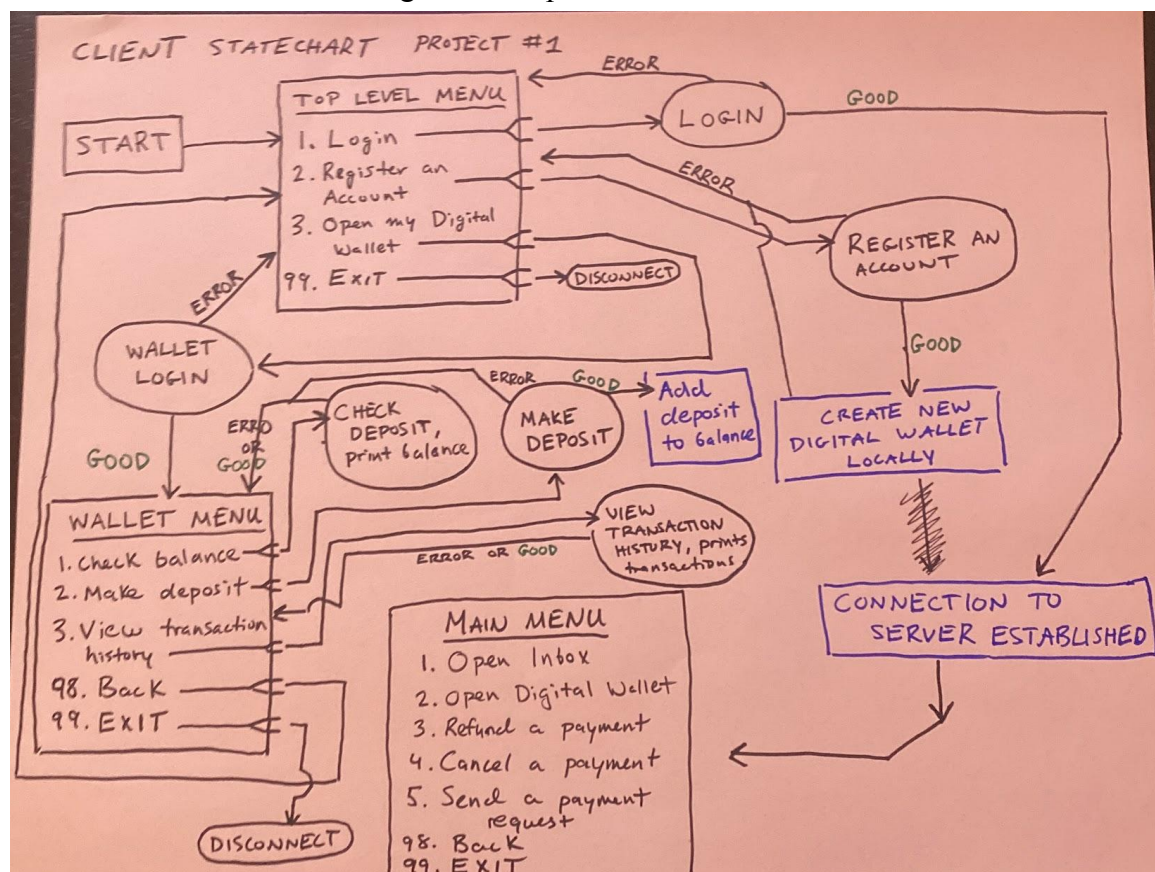 CLIENT STATECHART PROJECT #1
START
TOP LEVEL MENU
1. Login
2. Register an
Account
3. Open my Digital
Wallet
99. EXIT
ERROR
LOGIN
GOOD
ERROR
REGISTER AN
ACCOUNT
DISCONNECT
ERROR
WALLET
LOGIN
GOOD
GOOD
CREATE NEW
DIGITAL WALLET
LOCALLY
ERRO
OR
GOOD
CHECK
DEPOSIT,
print balance
ERROR
MAKE
DEPOSIT
GOOD
Add
deposit
to balance
WALLET MENU
1. Check balance
2. Make deposit
3. View transaction
history
98. Back
99. EXIT
VIEW
TRANSACTION
HISTORY, prints
transactions
ERROR OR GOOD
CONNECTION TO
SERVER ESTABLISHED
MAIN MENU
1. Open Inbox
2. Open Digital Wallet
3. Refund a payment
4. Cancel a payment
5. Send a payment
request
98. Back
99. EXIT
DISCONNECT